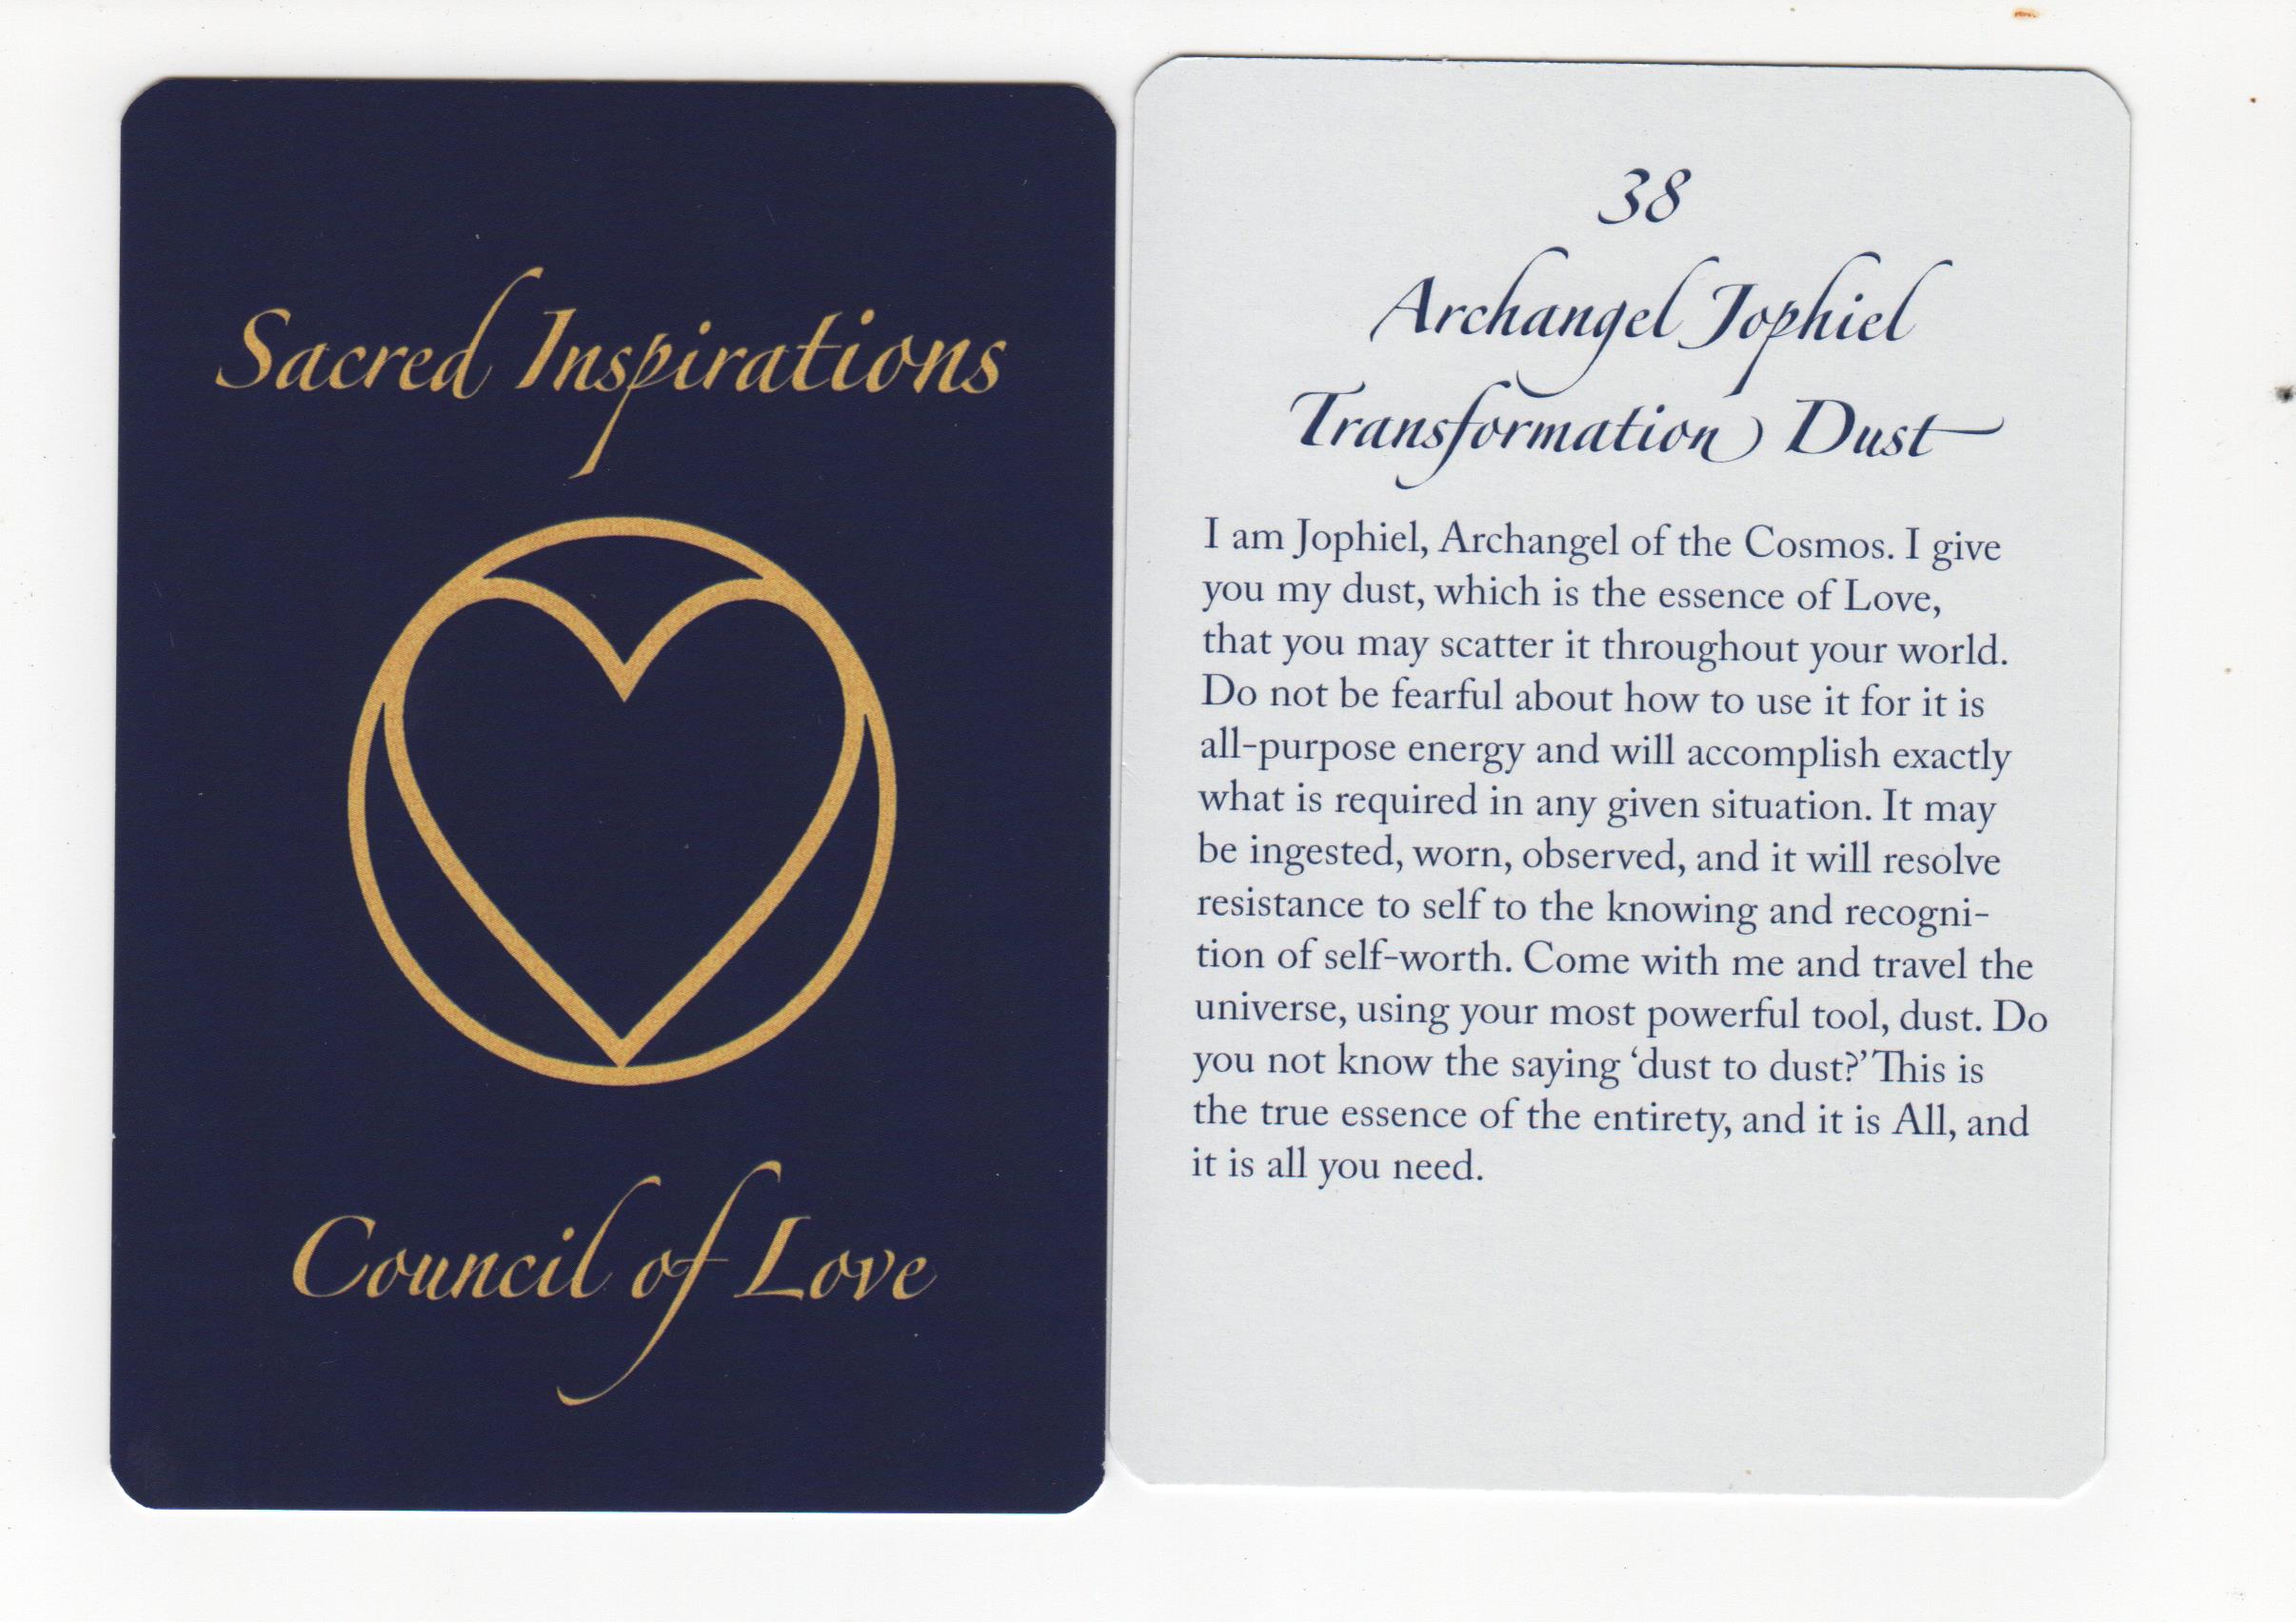 Sacred Inspirations
Council of Love
38
Archangel Jophiel
Transformation Dust
I am Jophiel, Archangel of the Cosmos. I give
you my dust, which is the essence of Love,
that you may scatter it throughout your world.
Do not be fearful about how to use it for it is
all-purpose energy and will accomplish exactly
what is required in any given situation. It may
be ingested, worn, observed, and it will resolve
resistance to self to the knowing and recogni-
tion of self-worth. Come with me and travel the
universe, using your most powerful tool, dust. Do
you not know the saying ‘dust to dust?’ This is
the true essence of the entirety, and it is All, and
it is all you need.